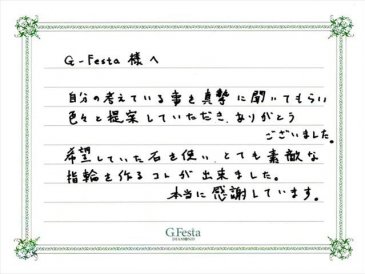 G-Festa 様へ
自分の考えている事を真摯に聞いてもらい
色々と提案していただき、ありがとう
ございました。
希望していた石を使い、とても素敵な
指輪を作るコトが出来ました。
本当に感謝しています。
G.Festa
DIAMOND